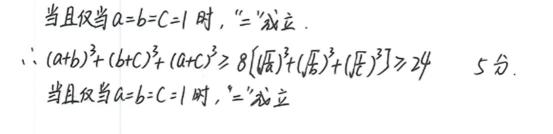 当且仅当a=b=c=1时，"="成立．
∴ (a+b)³+(b+c)³+(a+c)³≥8[(√a)³+(√b)³+(√c)³]≥24 5分．
当且仅当a=b=c=1时，"="成立